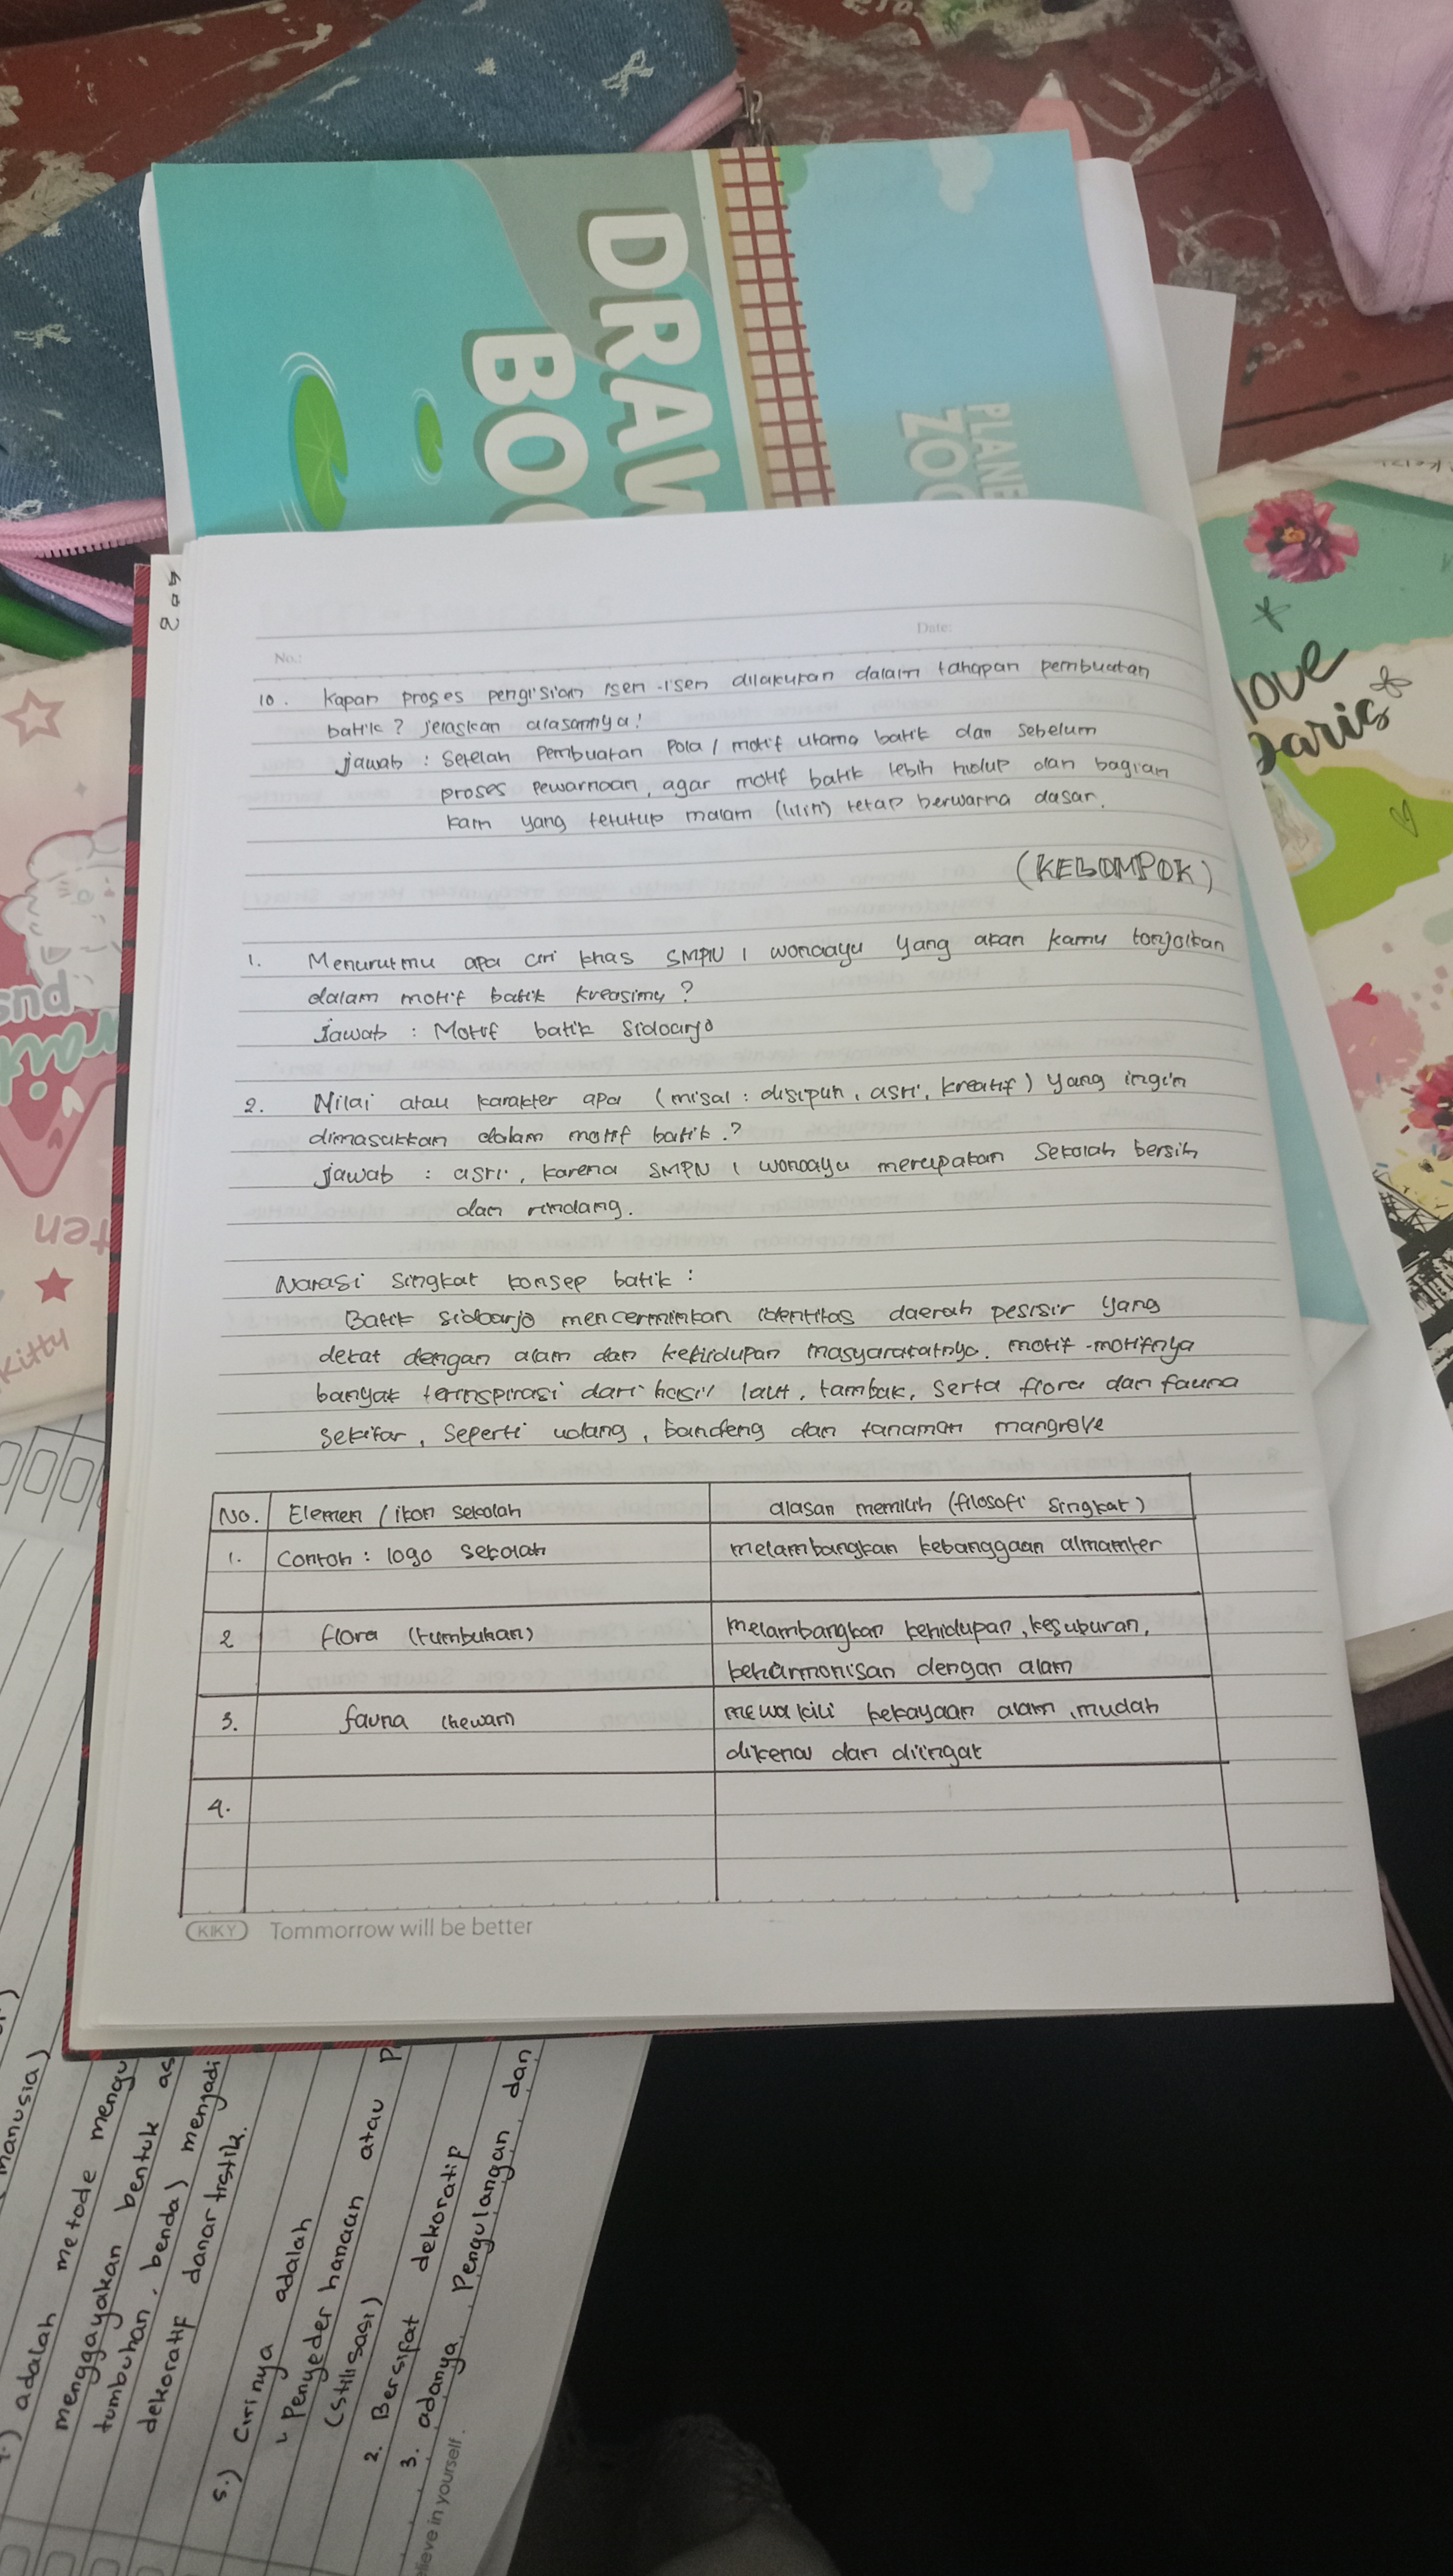 DRAW
BOO
PLANE
ZOO
love
paris
No.:
Date:
10. Kapan proses pengisian isen-isen dilakukan dalam tahapan pembuatan
batik? jelaskan alasannya!
jawab : Setelah Pembuatan Pola / motif utama batik dan sebelum
proses pewarnaan, agar motif batik lebih hidup dan bagian
kain yang tetutup malam (lilin) tetap berwarna dasar.
(KELOMPOK)
1. Menurutmu apa ciri khas SMPN 1 wonoayu yang akan kamu tonjolkan
dalam motif batik kreasimu?
Jawab : Motif batik Sidoarjo
2. Nilai atau karakter apa (misal : disiplin, asri, kreatif) yang ingin
dimasukkan dalam motif batik.?
Jawab : asri, karena SMPN 1 wonoayu merupakan Sekolah bersih
dan rindang.
Narasi Singkat konsep batik :
Batik sidoarjo mencerminkan identitas daerah pesisir yang
dekat dengan alam dan kehidupan masyarakatnya. motif-motifnya
banyak terinspirasi dari hasil laut, tambak, serta flora dan fauna
sekitar, seperti udang, bandeng dan tanaman mangrove
No. Elemen / ikon sekolah alasan memilih (filosofi singkat)
1. Contoh : logo sekolah melambangkan kebanggaan almamter
2 flora (tumbuhan) melambangkan kehidupan, kesuburan,
keharmonisan dengan alam
3. fauna (hewan) mewakili kekayaan alam, mudah
dikenal dan diingat
4.
KIKY Tommorrow will be better
manusia)
) adalah metode mengu
menggayakan bentuk as
tumbuhan, benda) menjadi
dekoratif danartistik.
5.) Cirinya adalah
Penyeder hanaan atau P
(stilisasi)
2. Bersifat dekoratip
3. adanya Pengulangan dan
elieve in yourself.
kitty